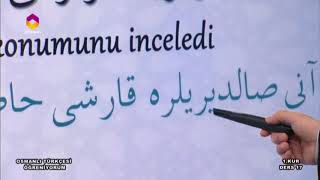 konumunu inceledi
آنی صالدیریلره قارشی
OSMANLI TÜRKÇESİ
ÖĞRENİYORUM
1.KUR
DERS 17